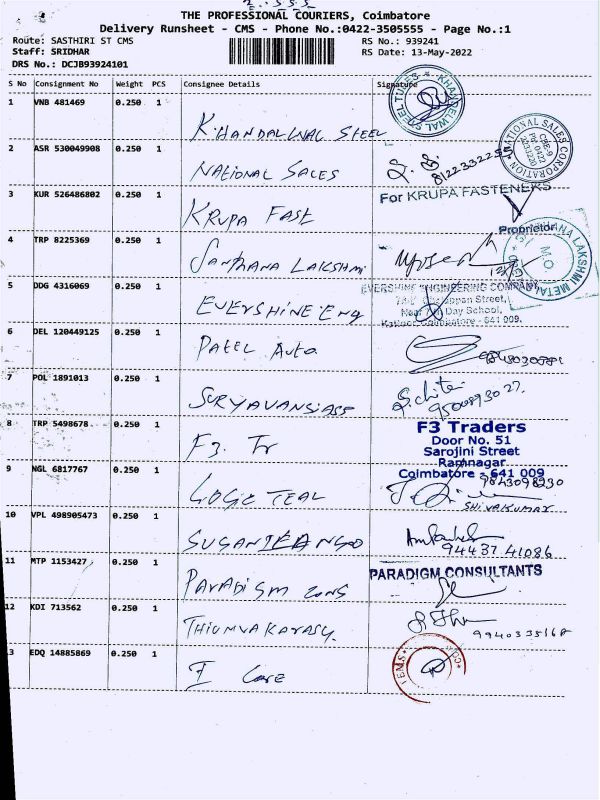 THE PROFESSIONAL COURIERS, Coimbatore
Delivery Runsheet - CMS - Phone No.:0422-3505555 - Page No.:1
Route: SASTHIRI ST CMS
Staff: SRIDHAR
DRS No.: DCJB93924101
RS No.: 939241
RS Date: 13-May-2022
S No Consignment No Weight PCS Consignee Details Signature
1 VNB 481469 0.250 1 KHANDALWAL STEEL
2 ASR 530049908 0.250 1 NATIONAL SALES
NATIONAL SALES CORPORATION
3 KUR 526486802 0.250 1 KRUPA FAST
For KRUPA FASTENERS
Proprietor
4 TRP 8225369 0.250 1 SANTHANA LAKSHMI
LAKSHMI METAL
M.O
5 DDG 4316069 0.250 1 EVERSHINE ENG
EVERSHINE ENGINEERING COMPANY
Street,
Day School,
Coimbatore - 641 009.
6 DEL 120449125 0.250 1 PATEL Auto
7 POL 1891013 0.250 1 SURYAVANSI
8 TRP 5498678 0.250 1 F3. Tr
F3 Traders
Door No. 51
Sarojini Street
Ramnagar
Coimbatore - 641 009
9 NGL 6817767 0.250 1 LOGIC TEAL
9843098230
SHIVAKUMAR
10 VPL 498905473 0.250 1
94437 41086
11 MTP 1153427 0.250 1 PARADISM CONS
PARADIGM CONSULTANTS
12 KDI 713562 0.250 1
9940335168
13 EDQ 14885869 0.250 1 I Care